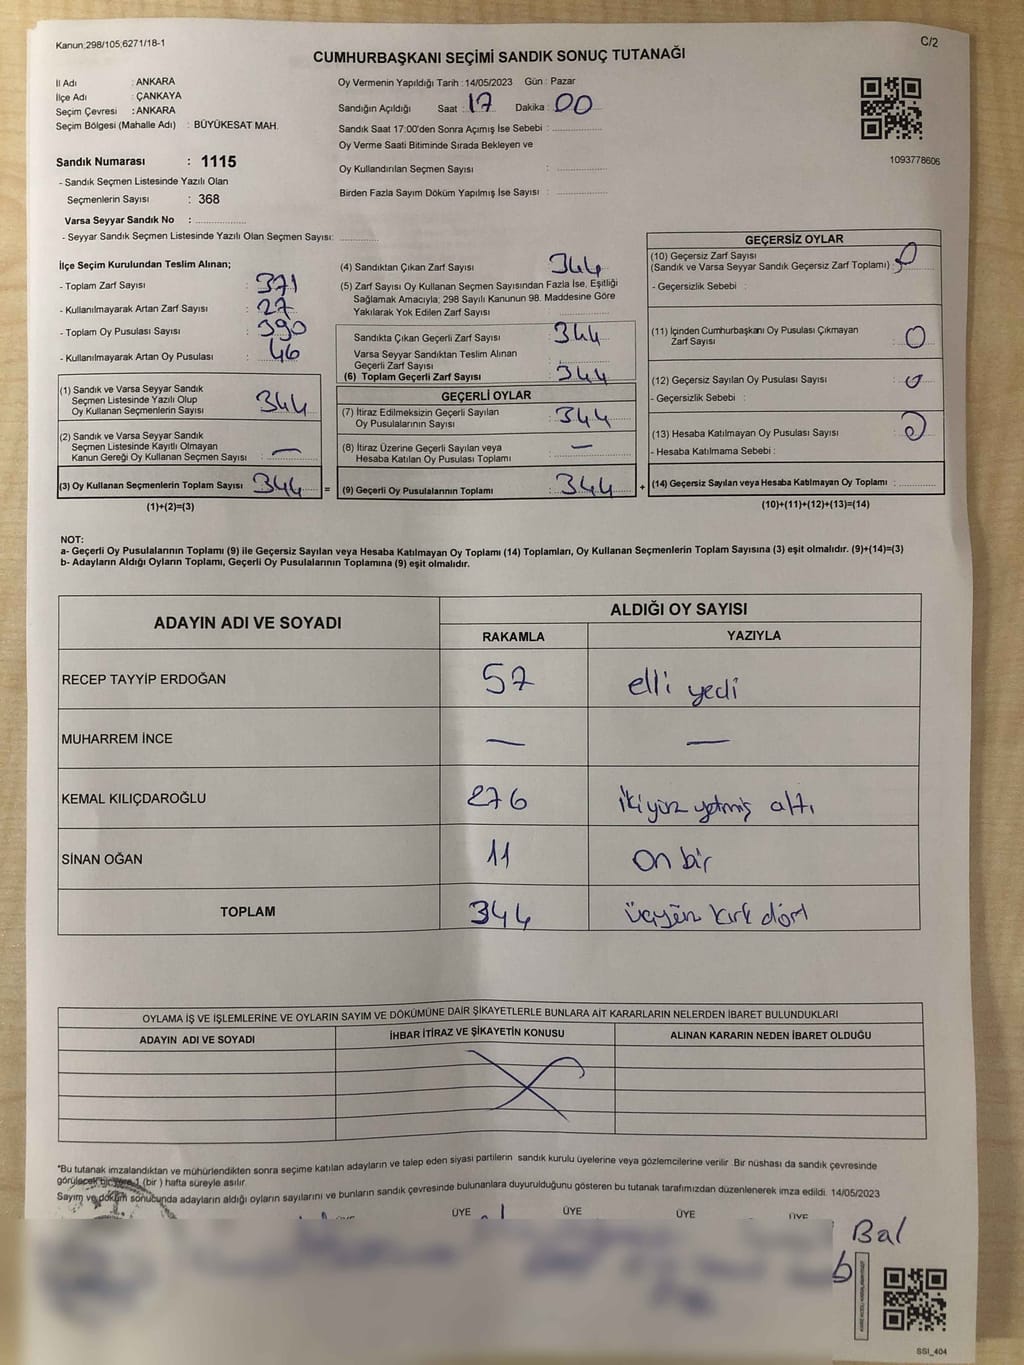 Kanun;298/105;6271/18-1
C/2
CUMHURBAŞKANI SEÇİMİ SANDIK SONUÇ TUTANAĞI
İl Adı : ANKARA
İlçe Adı : ÇANKAYA
Seçim Çevresi : ANKARA
Seçim Bölgesi (Mahalle Adı) : BÜYÜKESAT MAH.
Oy Vermenin Yapıldığı Tarih : 14/05/2023 Gün : Pazar
Sandığın Açıldığı Saat : 17 Dakika : 00
Sandık Saat 17:00'den Sonra Açımış İse Sebebi :
Oy Verme Saati Bitiminde Sırada Bekleyen ve
Oy Kullandırılan Seçmen Sayısı :
Birden Fazla Sayım Döküm Yapılmış İse Sayısı :
1093778606
Sandık Numarası : 1115
- Sandık Seçmen Listesinde Yazılı Olan
Seçmenlerin Sayısı : 368
Varsa Seyyar Sandık No :
- Seyyar Sandık Seçmen Listesinde Yazılı Olan Seçmen Sayısı:
İlçe Seçim Kurulundan Teslim Alınan;
- Toplam Zarf Sayısı : 371
- Kullanılmayarak Artan Zarf Sayısı : 27
- Toplam Oy Pusulası Sayısı : 390
- Kullanılmayarak Artan Oy Pusulası : 46
(1) Sandık ve Varsa Seyyar Sandık
Seçmen Listesinde Yazılı Olup
Oy Kullanan Seçmenlerin Sayısı : 344
(2) Sandık ve Varsa Seyyar Sandık
Seçmen Listesinde Kayıtlı Olmayan
Kanun Gereği Oy Kullanan Seçmen Sayısı : —
(3) Oy Kullanan Seçmenlerin Toplam Sayısı 344 =
(1)+(2)=(3)
(4) Sandıktan Çıkan Zarf Sayısı : 344
(5) Zarf Sayısı Oy Kullanan Seçmen Sayısından Fazla İse, Eşitliği
Sağlamak Amacıyla; 298 Sayılı Kanunun 98. Maddesine Göre
Yakılarak Yok Edilen Zarf Sayısı
Sandıkta Çıkan Geçerli Zarf Sayısı : 344
Varsa Seyyar Sandıktan Teslim Alınan
Geçerli Zarf Sayısı
(6) Toplam Geçerli Zarf Sayısı : 344
GEÇERLİ OYLAR
(7) İtiraz Edilmeksizin Geçerli Sayılan
Oy Pusulalarının Sayısı : 344
(8) İtiraz Üzerine Geçerli Sayılan veya
Hesaba Katılan Oy Pusulası Toplamı : —
(9) Geçerli Oy Pusulalarının Toplamı : 344 +
GEÇERSİZ OYLAR
(10) Geçersiz Zarf Sayısı
(Sandık ve Varsa Seyyar Sandık Geçersiz Zarf Toplamı) : 0
- Geçersizlik Sebebi :
(11) İçinden Cumhurbaşkanı Oy Pusulası Çıkmayan
Zarf Sayısı : 0
(12) Geçersiz Sayılan Oy Pusulası Sayısı : 0
- Geçersizlik Sebebi :
(13) Hesaba Katılmayan Oy Pusulası Sayısı : 0
- Hesaba Katılmama Sebebi :
(14) Geçersiz Sayılan veya Hesaba Katılmayan Oy Toplamı :
(10)+(11)+(12)+(13)=(14)
NOT:
a- Geçerli Oy Pusulalarının Toplamı (9) ile Geçersiz Sayılan veya Hesaba Katılmayan Oy Toplamı (14) Toplamları, Oy Kullanan Seçmenlerin Toplam Sayısına (3) eşit olmalıdır. (9)+(14)=(3)
b- Adayların Aldığı Oyların Toplamı, Geçerli Oy Pusulalarının Toplamına (9) eşit olmalıdır.
ADAYIN ADI VE SOYADI
ALDIĞI OY SAYISI
RAKAMLA YAZIYLA
RECEP TAYYİP ERDOĞAN 57 elli yedi
MUHARREM İNCE — —
KEMAL KILIÇDAROĞLU 276 ikiyüz yetmiş altı
SİNAN OĞAN 11 On bir
TOPLAM 344 üçyüz kırk dört
OYLAMA İŞ VE İŞLEMLERİNE VE OYLARIN SAYIM VE DÖKÜMÜNE DAİR ŞİKAYETLERLE BUNLARA AİT KARARLARIN NELERDEN İBARET BULUNDUKLARI
ADAYIN ADI VE SOYADI İHBAR İTİRAZ VE ŞİKAYETİN KONUSU ALINAN KARARIN NEDEN İBARET OLDUĞU
*Bu tutanak imzalandıktan ve mühürlendikten sonra seçime katılan adayların ve talep eden siyasi partilerin sandık kurulu üyelerine veya gözlemcilerine verilir. Bir nüshası da sandık çevresinde
görülecek bir yere 1 (bir) hafta süreyle asılır.
Sayım ve döküm sonucunda adayların aldığı oyların sayılarını ve bunların sandık çevresinde bulunanlara duyurulduğunu gösteren bu tutanak tarafımızdan düzenlenerek imza edildi. 14/05/2023
ÜYE ÜYE ÜYE ÜYE ÜYE
Bal
b
SSI_404